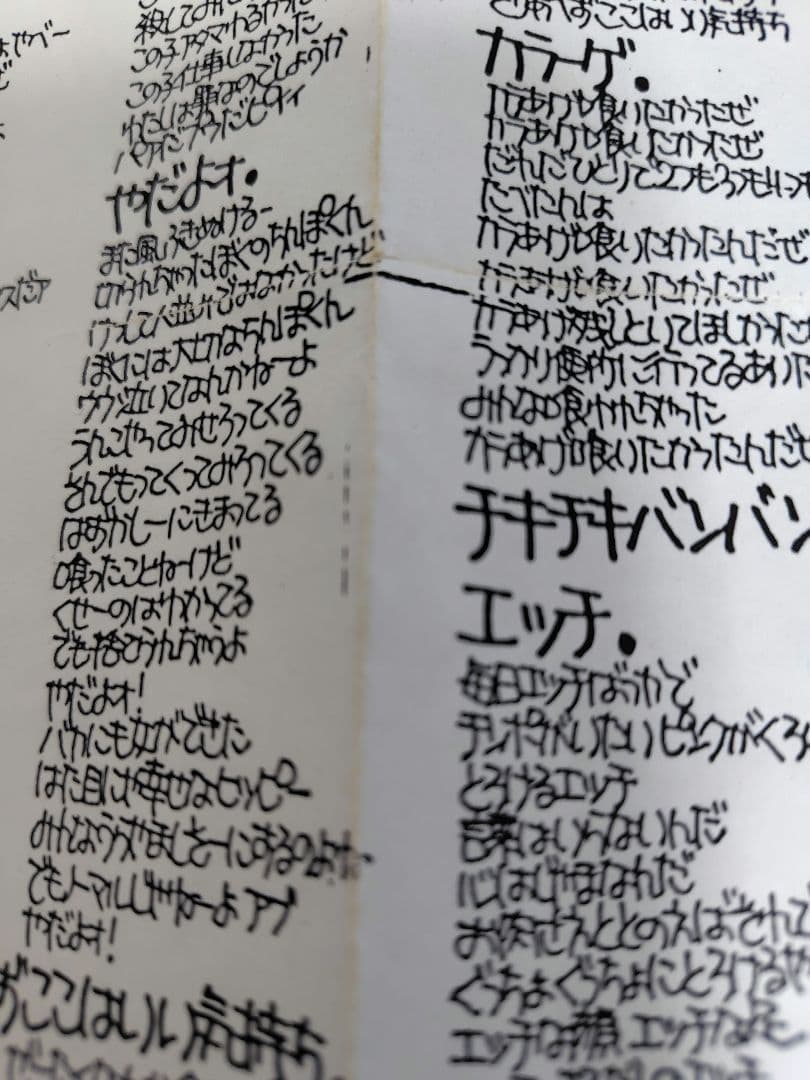 殺してみた
この子アタマわるかった
この子仕事しなかった
わたしは罪なのでしょうか
やだよオ.
また風ふきぬけるー
切られちゃったぼくのちんぽくん
けっして人並みではなかったけど
ぼくには大切なちんぽくん
ウウン泣いてなんかねーよ
うんこやってみせろってくる
なんでもってくってみろってくる
はずかしーにきまってる
喰ったことねーけど
くせーのはわかってる
でも捨てられちゃうよ
やだよオ!
バカにも女ができた
はた目には幸せなセッピー
みんなうらやましそーにするのよねー
でもノーマルじゃねーよ アブ
やだよオ!
ずここはいい気持ち
とりあえずここはいい気持ち
カラーゲ.
カラあげも喰いたかったぜ
カラあげも喰いたかったぜ
だれだひとりで2つも3つもいつ
たべたんは
カラあげも喰いたかったんだぜ
カラあげも喰いたかったぜ
カラあげ残しといてほしかった
うっかり便所に行ってるあいだ
みんな喰われちゃった
カラあげ喰いたかったんだ
チキチキバンバン
エッチ.
毎日エッチばっかで
チンポがいたい ピンクがくろ
とろけるエッチ
言葉はいらないんだ
心はじゃまなんだ
お肉さえととのえばされ
ぐちょぐちょにとろける
エッチな顔 エッチな足